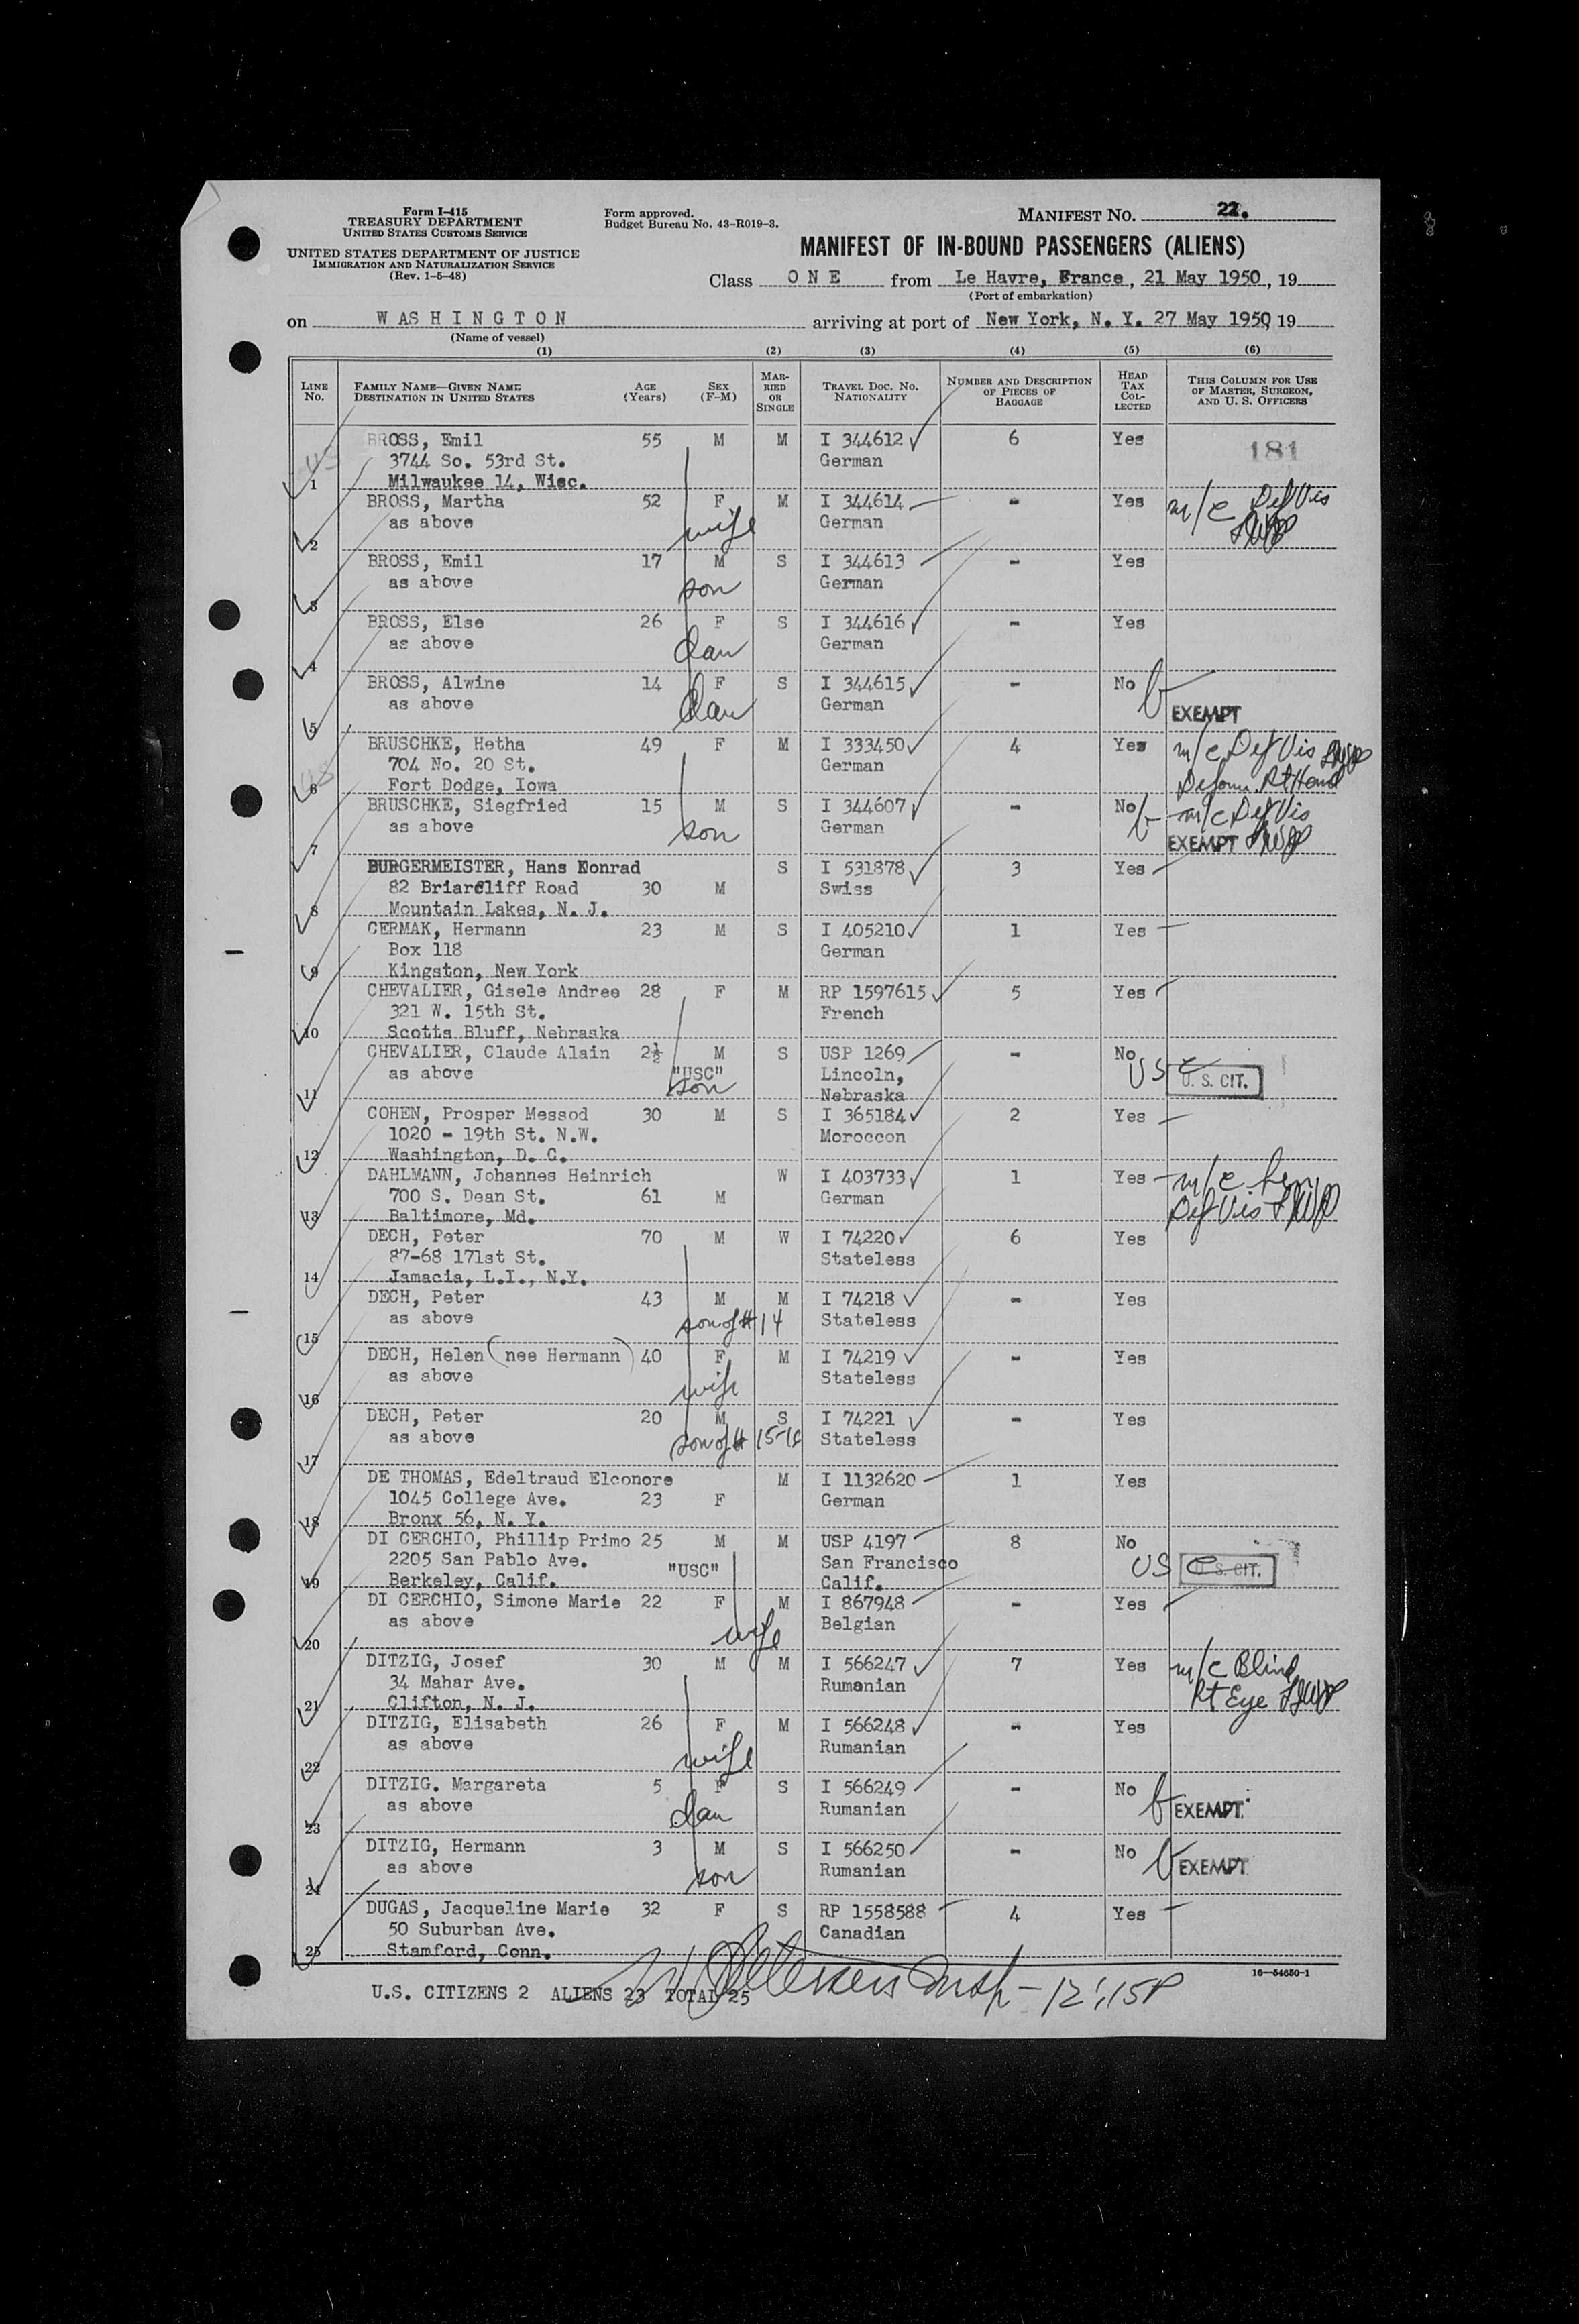 Form I-415
TREASURY DEPARTMENT
UNITED STATES CUSTOMS SERVICE
UNITED STATES DEPARTMENT OF JUSTICE
IMMIGRATION AND NATURALIZATION SERVICE
(Rev. 1-5-48)
Form approved.
Budget Bureau No. 43-R019-3.
MANIFEST NO. 22.
MANIFEST OF IN-BOUND PASSENGERS (ALIENS)
Class O N E from Le Havre, France, 21 May 1950, 19
(Port of embarkation)
on W AS H I N G T O N arriving at port of New York, N. Y. 27 May 1950 19
(Name of vessel)
(1) (2) (3) (4) (5) (6)
LINE No. FAMILY NAME—GIVEN NAME DESTINATION IN UNITED STATES AGE (Years) SEX (F-M) MARRIED OR SINGLE TRAVEL DOC. NO. NATIONALITY NUMBER AND DESCRIPTION OF PIECES OF BAGGAGE HEAD TAX COLLECTED THIS COLUMN FOR USE OF MASTER, SURGEON, AND U. S. OFFICERS
BROSS, Emil 55 M M I 344612 6 Yes 181
3744 So. 53rd St. German
1 Milwaukee 14, Wisc.
BROSS, Martha 52 F M I 344614 - Yes m/c Def Vis
as above wife German
2
BROSS, Emil 17 M S I 344613 - Yes
as above son German
3
BROSS, Else 26 F S I 344616 - Yes
as above dau German
4
BROSS, Alwine 14 F S I 344615 - No
as above dau German EXEMPT
5
BRUSCHKE, Hetha 49 F M I 333450 4 Yes m/c Def Vis
704 No. 20 St. German
6 Fort Dodge, Iowa Deform. Rt Hand
BRUSCHKE, Siegfried 15 M S I 344607 - No m/c Def Vis
as above son German EXEMPT
7
BURGERMEISTER, Hans Konrad S I 531878 3 Yes
82 Briarcliff Road 30 M Swiss
8 Mountain Lakes, N. J.
CERMAK, Hermann 23 M S I 405210 1 Yes
Box 118 German
9 Kingston, New York
CHEVALIER, Gisele Andree 28 F M RP 1597615 5 Yes
321 W. 15th St. French
10 Scotts Bluff, Nebraska
CHEVALIER, Claude Alain 2½ M S USP 1269 - No
as above "USC" son Lincoln, USC U. S. CIT.
11 Nebraska
COHEN, Prosper Messod 30 M S I 365184 2 Yes
1020 - 19th St. N.W. Moroccon
12 Washington, D. C.
DAHLMANN, Johannes Heinrich W I 403733 1 Yes m/c
700 S. Dean St. 61 M German Def Vis
13 Baltimore, Md.
DECH, Peter 70 M W I 74220 6 Yes
87-68 171st St. Stateless
14 Jamacia, L.I., N.Y.
DECH, Peter 43 M M I 74218 - Yes
as above son of # 14 Stateless
15
DECH, Helen (nee Hermann) 40 F M I 74219 - Yes
as above wife Stateless
16
DECH, Peter 20 M S I 74221 - Yes
as above son of # 15-16 Stateless
17
DE THOMAS, Edeltraud Elconore M I 1132620 1 Yes
1045 College Ave. 23 F German
18 Bronx 56, N. Y.
DI CERCHIO, Phillip Primo 25 M M USP 4197 8 No
2205 San Pablo Ave. "USC" San Francisco USC U. S. CIT.
19 Berkeley, Calif. Calif.
DI CERCHIO, Simone Marie 22 F M I 867948 - Yes
as above wife Belgian
20
DITZIG, Josef 30 M M I 566247 7 Yes m/c Blind
34 Mahar Ave. Rumanian Rt Eye
21 Clifton, N. J.
DITZIG, Elisabeth 26 F M I 566248 - Yes
as above wife Rumanian
22
DITZIG. Margareta 5 F S I 566249 - No
as above dau Rumanian EXEMPT
23
DITZIG, Hermann 3 M S I 566250 - No
as above son Rumanian EXEMPT
24
DUGAS, Jacqueline Marie 32 F S RP 1558588 4 Yes
50 Suburban Ave. Canadian
25 Stamford, Conn.
16—54650-1
U.S. CITIZENS 2 ALIENS 23 TOTAL 25 Insp - 12:15P